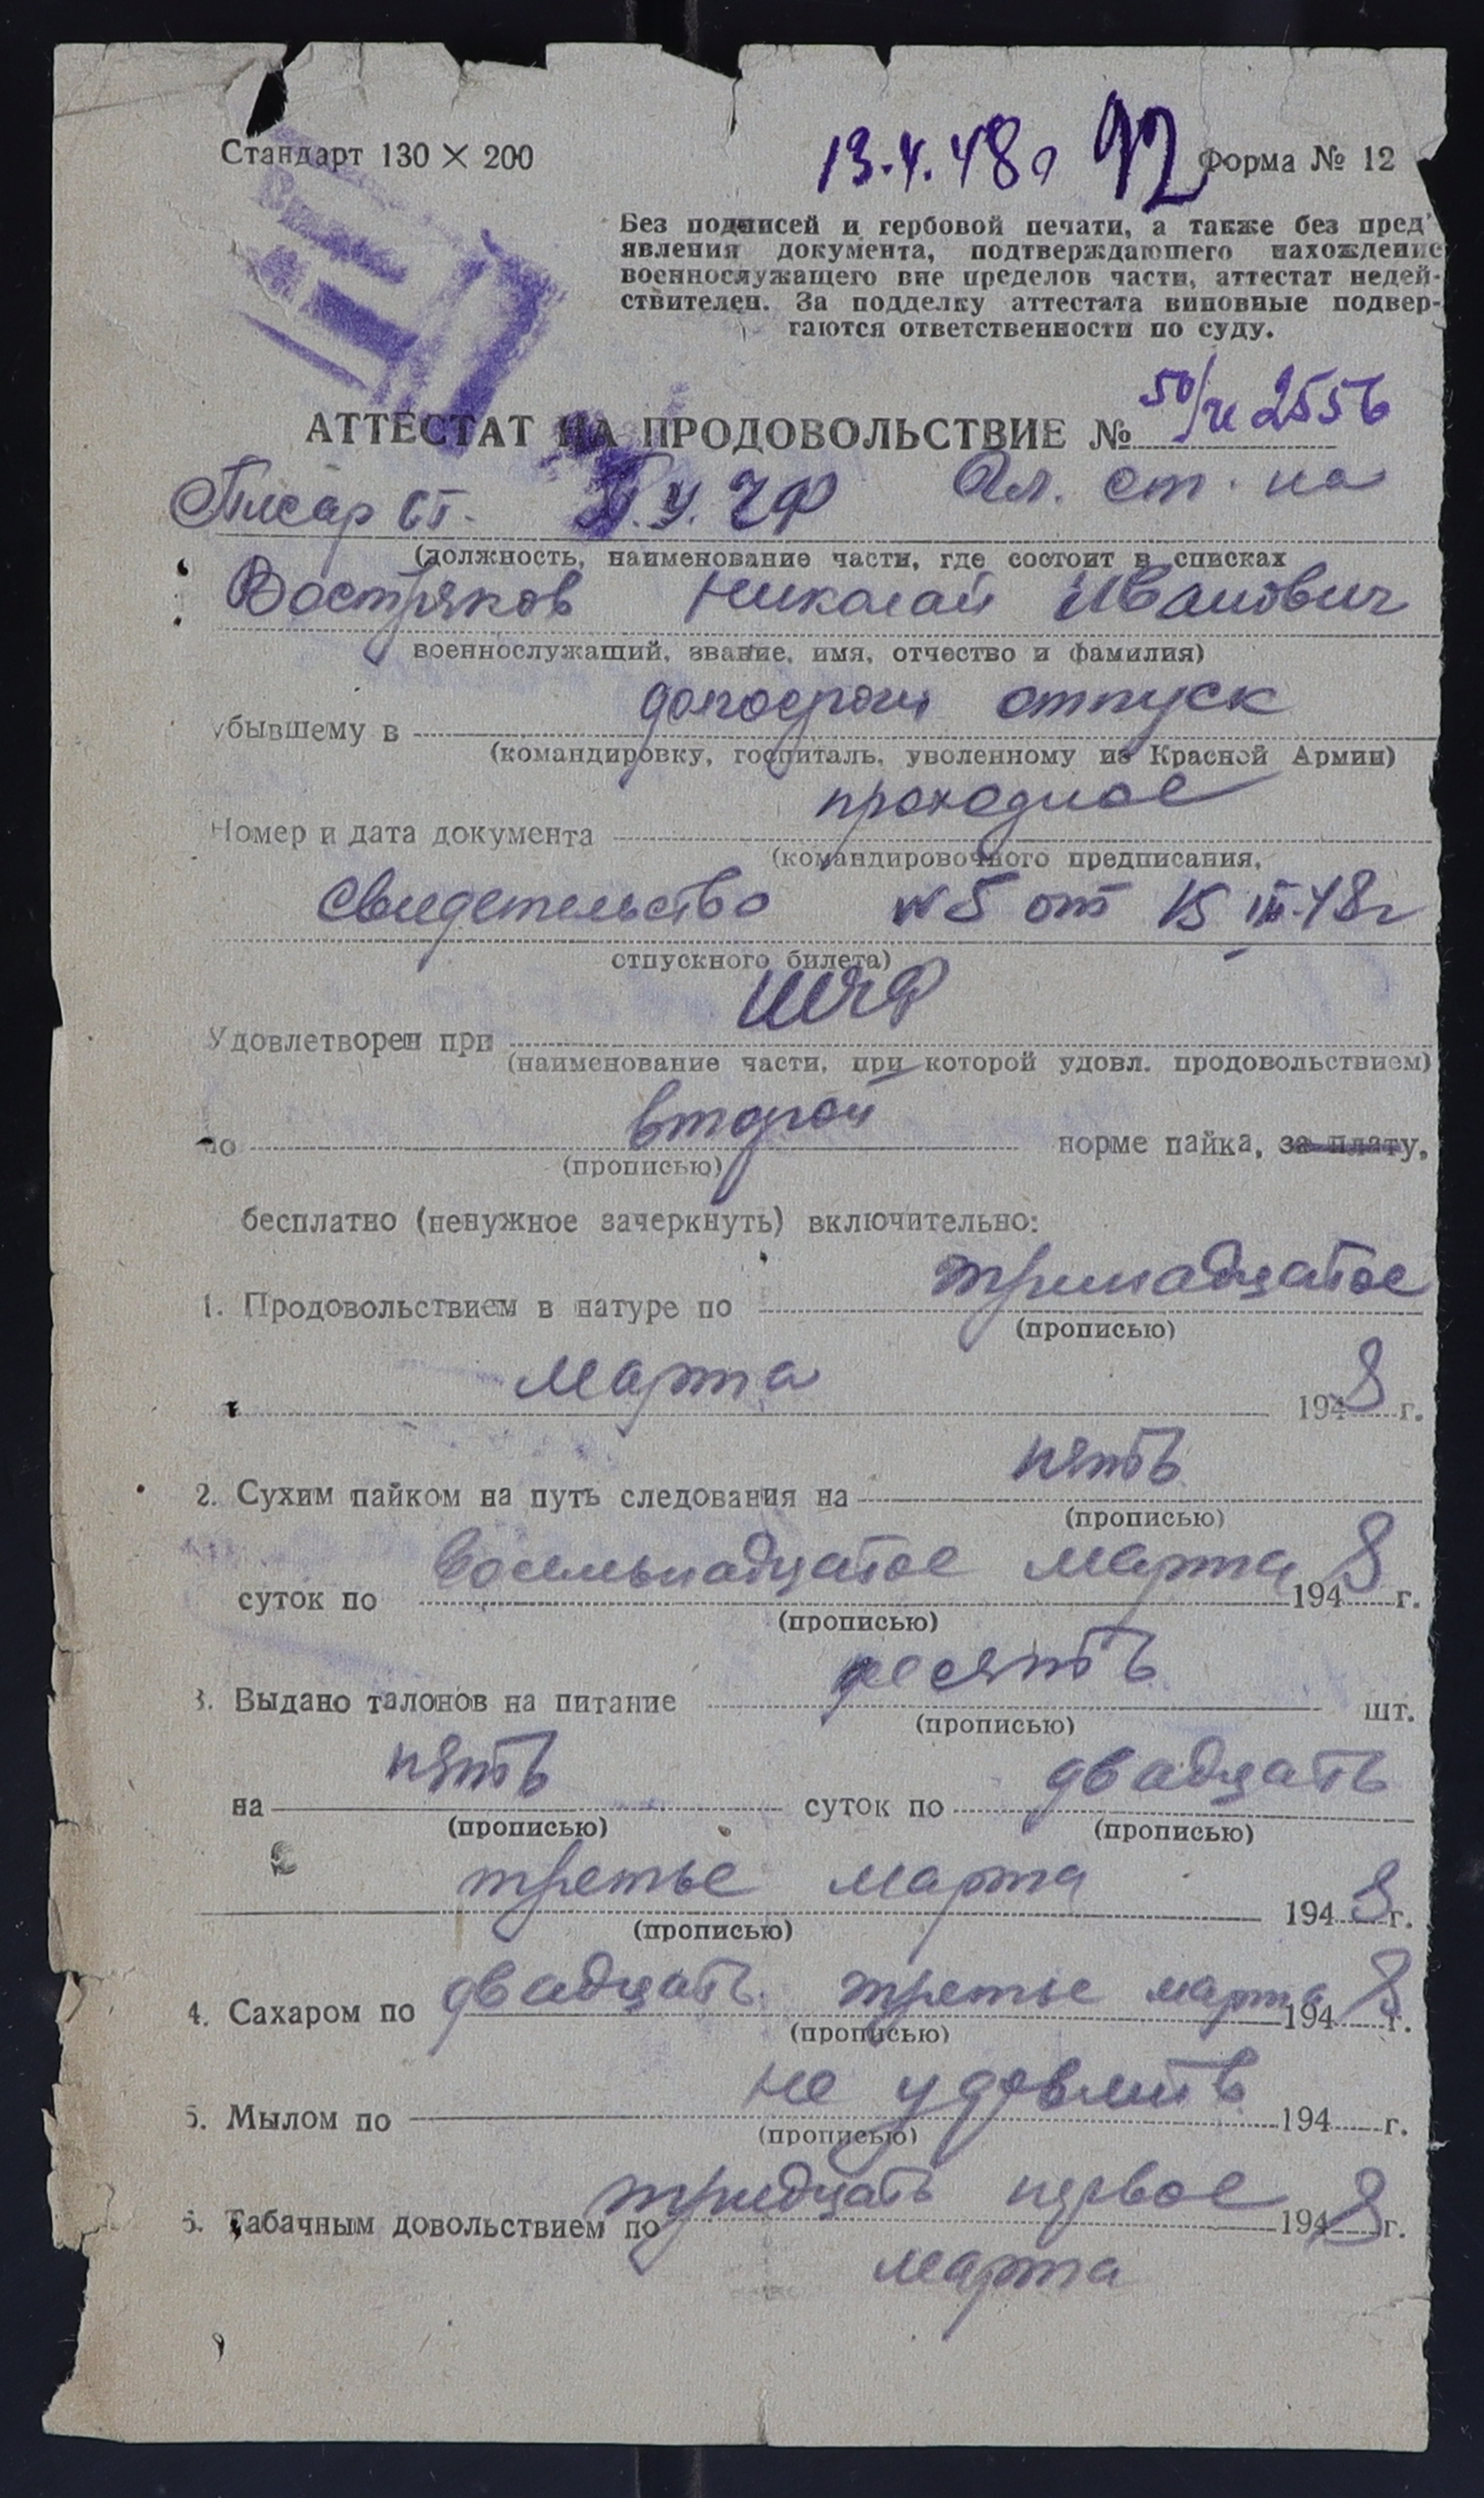 Стандарт 130 × 200
13.4.48г 92 Форма № 12
Без подписей и гербовой печати, а также без пред'
явления документа, подтверждающего нахождение
военнослужащего вне пределов части, аттестат недей-
ствителен. За подделку аттестата виновные подвер-
гаются ответственности по суду.
АТТЕСТАТ НА ПРОДОВОЛЬСТВИЕ № 50/ч 2556
Писар ст. П.У. ЧФ Гл. ст. на
(должность, наименование части, где состоит в списках
Востряков Николай Иванович
военнослужащий, звание, имя, отчество и фамилия)
убывшему в долгосроч отпуск
(командировку, госпиталь, уволенному из Красной Армии)
Номер и дата документа проходное
(командировочного предписания,
свидетельство № 5 от 15 III-48г
отпускного билета)
Удовлетворен при ШЧФ
(наименование части, при которой удовл. продовольствием)
по второй норме пайка, за плату,
(прописью)
бесплатно (ненужное зачеркнуть) включительно:
1. Продовольствием в натуре по тринадцатое
(прописью)
марта 1948 г.
2. Сухим пайком на путь следования на пять
(прописью)
суток по восемьнадцатое марта 1948 г.
(прописью)
3. Выдано талонов на питание десять шт.
(прописью)
на пять суток по двадцать
(прописью) (прописью)
третье марта 1948 г.
(прописью)
4. Сахаром по двадцать третье марта 1948 г.
(прописью)
5. Мылом по не удовлетв 194 г.
(прописью)
6. Табачным довольствием по тридцать первое 1948 г.
марта